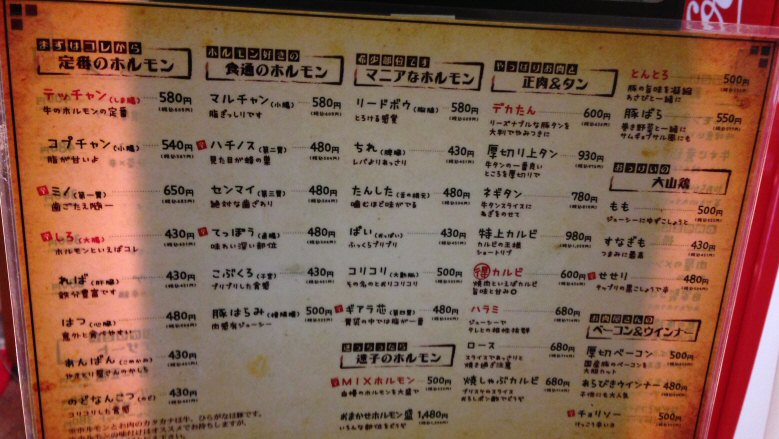 まずはコレから
定番のホルモン
テッチャン(しま腸) 580円
牛のホルモンの定番
コプチャン(小腸) 540円
脂が甘いよ
ミノ(第一胃) 650円
歯ごたえ随一
しろ(大腸) 430円
ホルモンといえばコレ
ればー(肝臓) 430円
鉄分豊富です
はつ(心臓) 430円
意外と食べやすい
あんぱん(こめかみ) 430円
やきとり屋さんのかしら
のどなんこつ 430円
コリコリした食感
※ホルモンとお肉のカタカナは牛、ひらがなは豚です。
ホルモン好きの
食通のホルモン
マルチャン(小腸) 580円
脂ぎっしりです
ハチノス(第二胃) 480円
見た目が蜂の巣
センマイ(第三胃) 480円
絶対な歯ざわり
てっぽう(直腸) 480円
味わい深い部位
こぶくろ(子宮) 430円
プリプリした食感
豚はらみ(横隔膜) 500円
肉質有ジューシー
希少部位です
マニアなホルモン
リードボウ(胸腺) 580円
とろける感覚
ちれ(脾臓) 430円
レバよりあっさり
たんした(舌の根元) 480円
噛むほど味がでる
ぱい(おっぱい) 430円
ふっくらプリプリ
コリコリ(大動脈) 500円
その名のとおりコリコリ
ギアラ芯(第四胃) 480円
胃袋の中では脂が一番
迷子のホルモン
MIXホルモン 500円
自慢のホルモンを大盛で
おまかせホルモン盛 1,480円
いろんな部位をどうぞ
やっぱりお肉と
正肉&タン
デカたん 600円
リーズナブルな豚タンを
大判で包みつきに
厚切り上タン 930円
牛タンの一番良い
ところを厚切りで
ネギタン 780円
牛タンスライスに
ねぎをのせて
特上カルビ 980円
カルビの王様
ショートリブ
得カルビ 600円
焼肉といえばカルビ
旨味と甘み◎
ハラミ 680円
ジューシーで
タレとの相性抜群
ロース 680円
スライスであっさりと
焼き過ぎ注意
焼しゃぶカルビ 680円
ブリスケのスライス
おろしポン酢でどうぞ
とんとろ 500円
豚の旨味を凝縮
わさびと一緒に
豚ばら 550円
巻き野菜と一緒に
サムギョプサル風にも
大山鶏
もも 500円
ジューシーにゆずこしょうと
すなぎも 430円
つまみに最高
せせり 480円
タップリの黒こしょうで
お肉屋さんの
ベーコン&ウインナー
厚切ベーコン 500円
国産豚のベーコンを
極厚カット
あらびきウインナー 480円
子供にも大人気
チョリソー 500円
けっこう辛いヨ